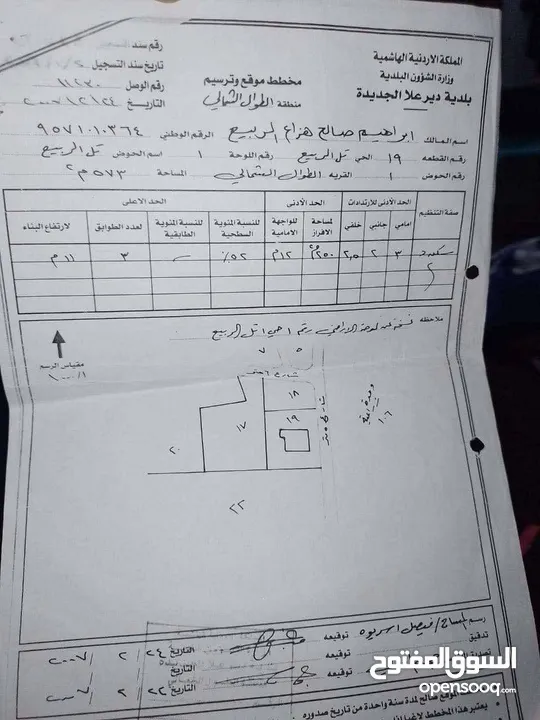 المملكة الاردنية الهاشمية
وزارة الشؤون البلدية
بلدية دير علا الجديدة
مخطط موقع وترسيم
منطقة الطوال الشمالي
رقم سند
تاريخ سند التسجيل
رقم الوصل ١١٢٣٠
التاريخ ٢٤ / ٢ / ٢٠٠٧
اسم المالك ابراهيم صالح هزاع الربيع الرقم الوطني ٩٥٧١٠١٠٣٦٤
رقم القطعه ١٩ الحي تل الربيع رقم اللوحة ١ اسم الحوض تل الربيع
رقم الحوض ١ القريه الطوال الشمالي المساحة ٥٧٣ م٢
صفة التنظيم الحد الأدنى للأرتدادات الحد الأدنى الحد الاعلى
امامي جانبي خلفي لمساحة الافراز للواجهة الامامية للنسبة المئوية السطحية للنسبة المئوية الطابقية لعدد الطوابق لارتفاع البناء
سكن د ٣ ٢ ٢,٥ ٢٥٠م٢ ١٢م ٥٢٪ ٣ ١١م
ملاحظه نسخة عن لوحة الاراضي رقم ١ حي / تل الربيع
مقياس الرسم
١/١٠٠٠
٧ ٥
شارع ٦ متر
١٨
١٩
١٧
٢٠
٢٢
شارع ٥ متر
١٦
رسم المساح / فيصل توقيعه التاريخ ٢٤ / ٢ / ٢٠٠٧
تدقيق
توقيعه التاريخ ٢٢ / ٢ / ٢٠٠٧
الموقع صالح لمدة سنة واحدة من تاريخ صدوره
يعتبر هذا المخطط لاغيا
السوق المفتوح
opensooq.com